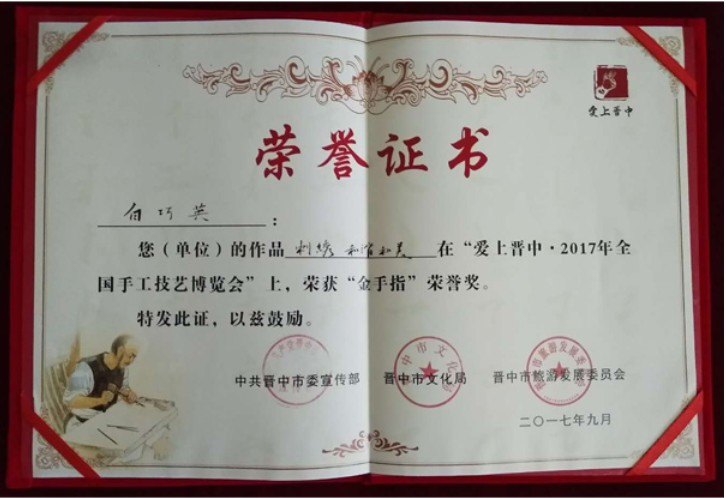 爱上晋中
荣誉证书
白巧英：
您（单位）的作品 刺绣 和谐和美 在“爱上晋中·2017年全
国手工技艺博览会”上，荣获“金手指”荣誉奖。
特发此证，以兹鼓励。
中共晋中市委宣传部 晋中市文化局 晋中市旅游发展委员会
二〇一七年九月